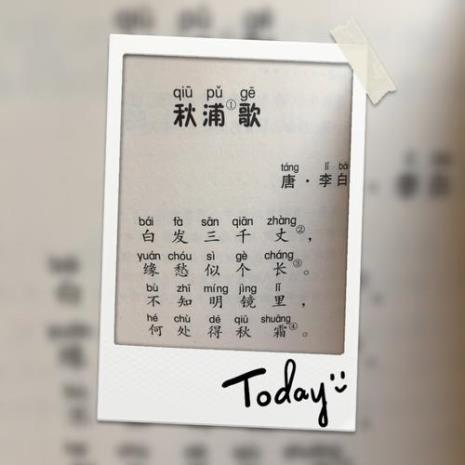 qiū pǔ gē
秋浦①歌
táng lǐ bái
唐·李白
bái fà sān qiān zhàng
白发三千丈②，
yuán chóu sì gè cháng
缘愁似个长③。
bù zhī míng jìng lǐ
不知明镜里，
hé chù dé qiū shuāng
何处得秋霜④。
Today